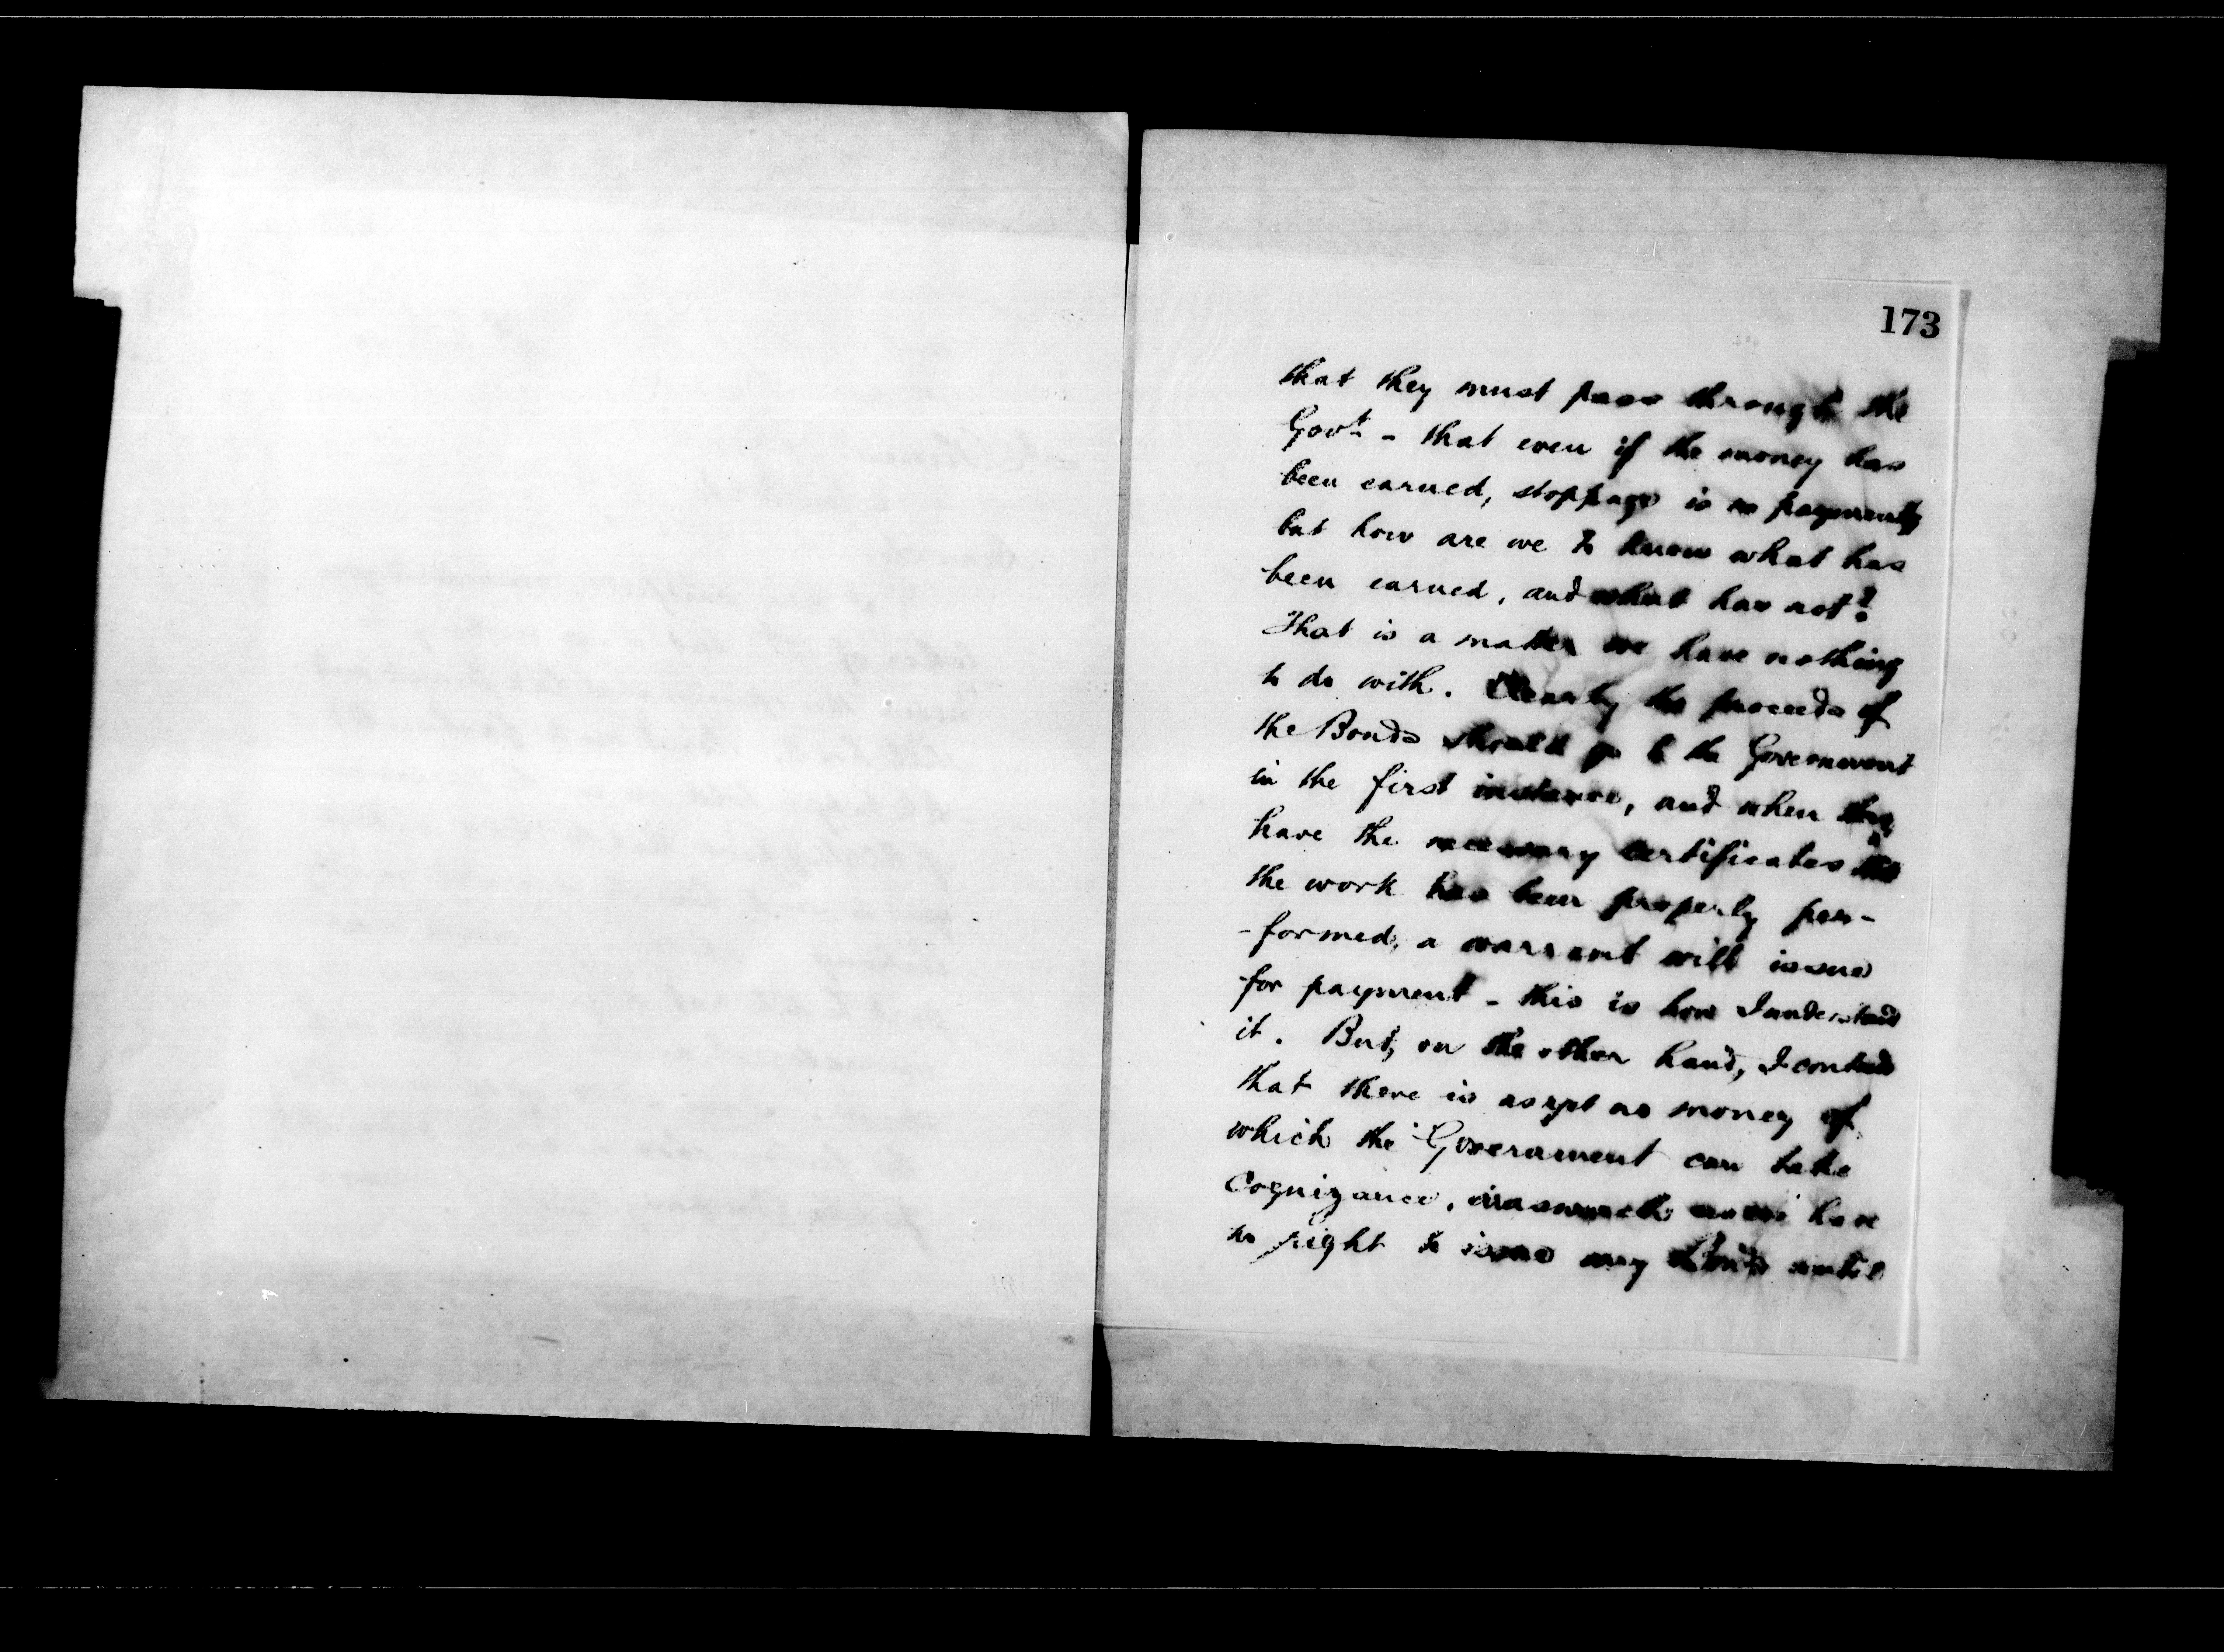 173
that they must pass through the
Govt - that even if the money has
been earned, stoppage is no payment,
but how are we to know what has
been earned, and what has not?
That is a matter we have nothing
to do with. Clearly the proceeds of
the Bonds should go to the Government
in the first instance, and when they
have the necessary certificates that
the work has been properly per-
-formed, a warrant will issue
for payment - this is how I understand
it. But, on the other hand, I contend
that there is as yet no money of
which the Government can take
Cognizance, inasmuch as we have
no right to issue any until